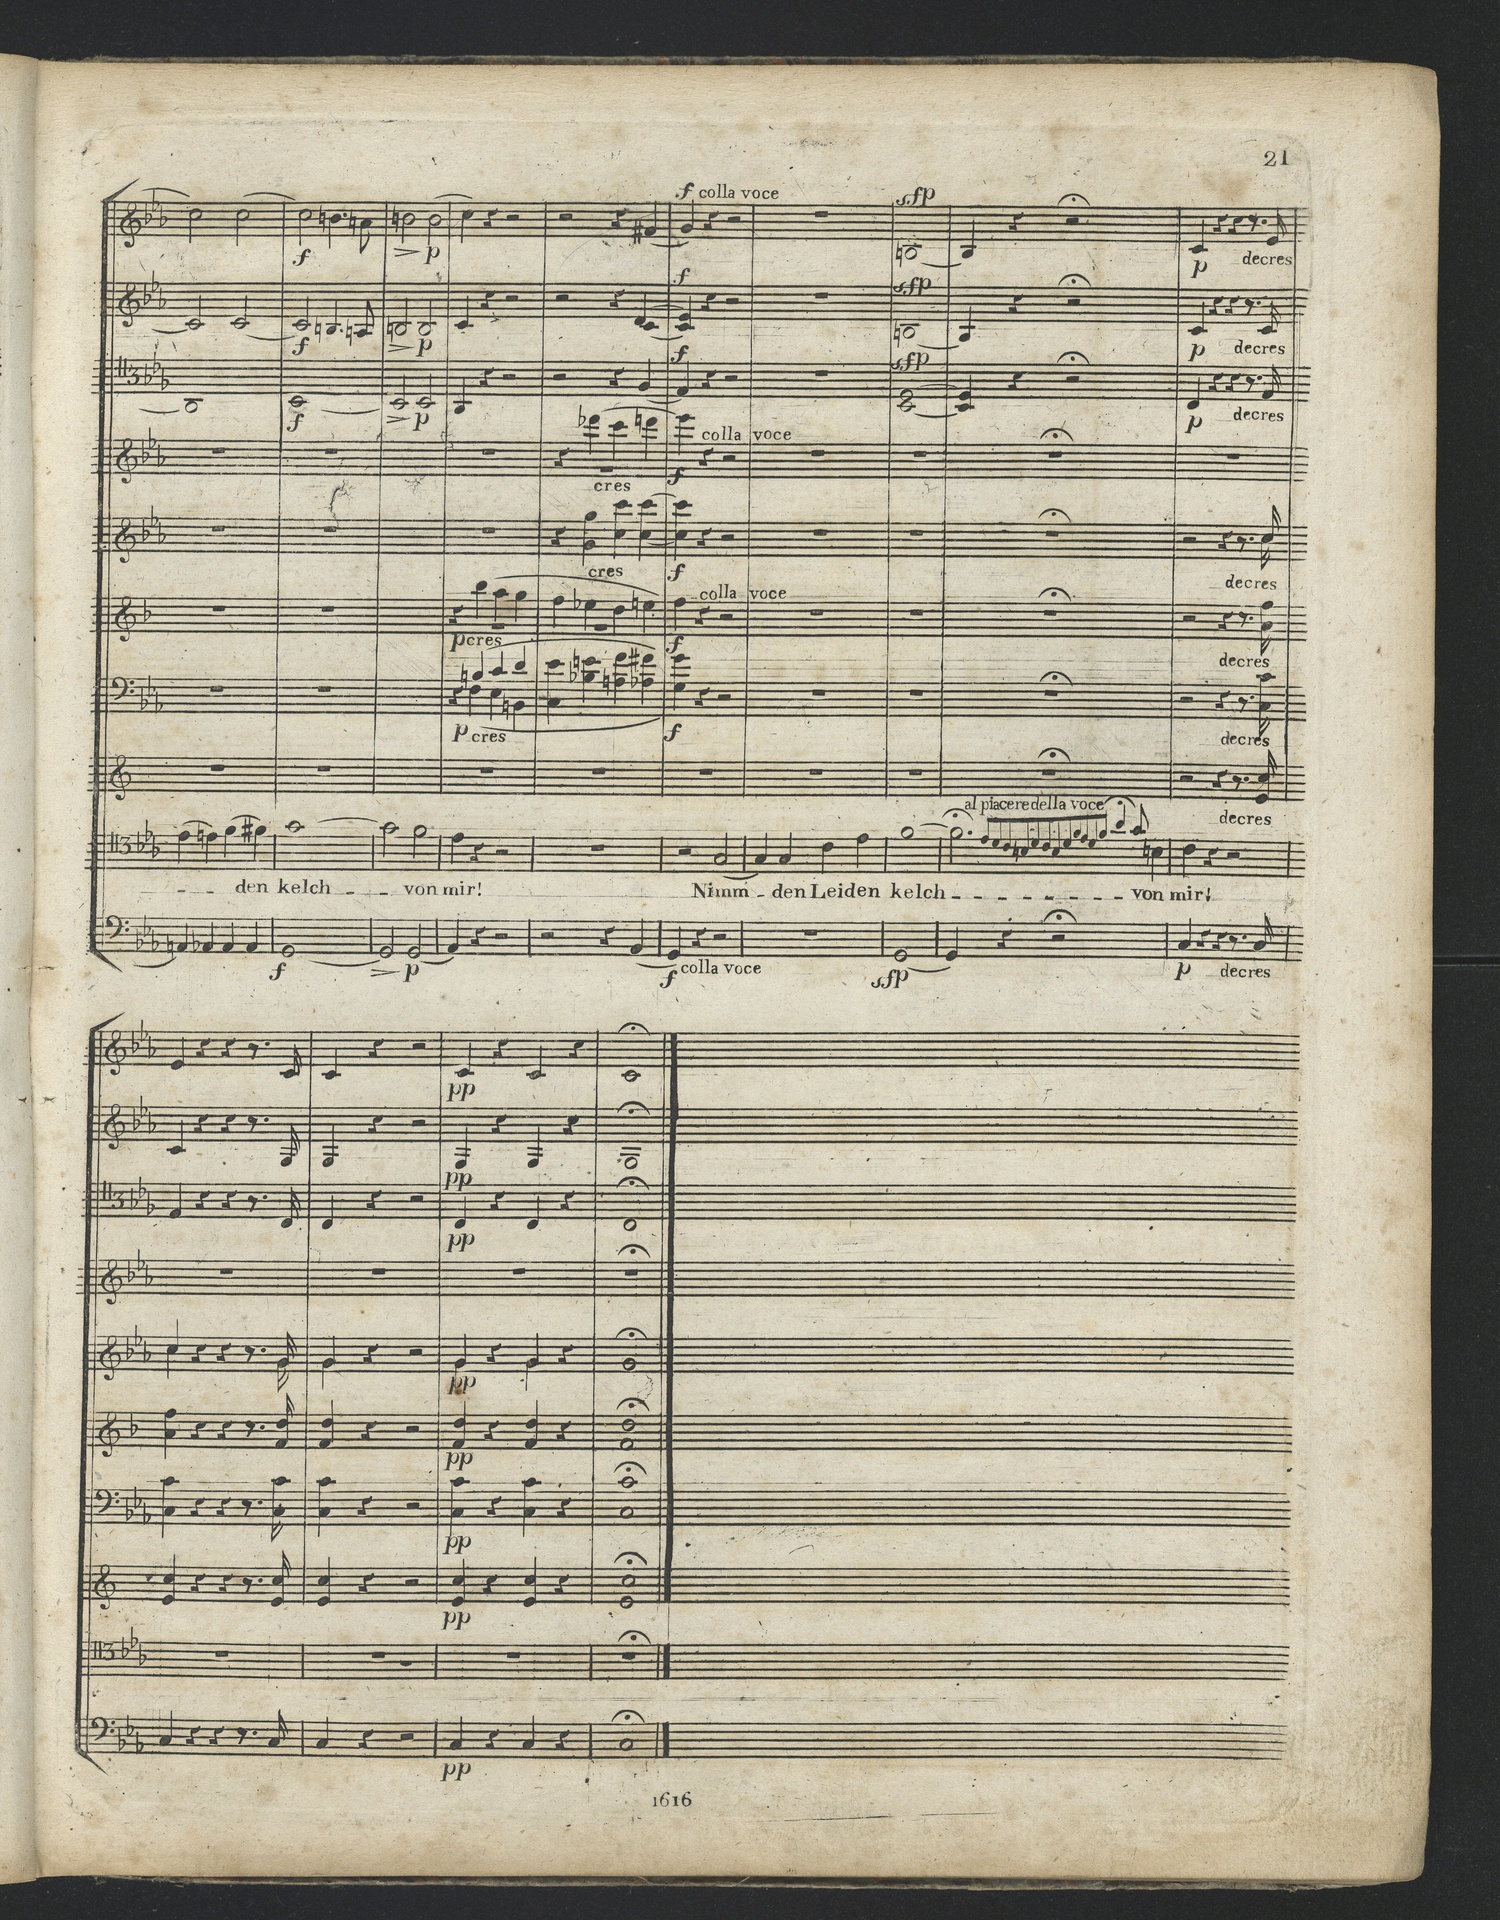 21
f colla voce
sfp
f
> p
p
decres
f
sfp
f
> p
p
decres
f
sfp
f
> p
p
decres
colla voce
cres
f
cres
f
decres
colla voce
p cres
f
decres
p cres
f
decres
al piacere della voce
decres
- - - den kelch - - von mir! Nimm - den Leiden kelch - - - - - - - - von mir!
f
> p
f colla voce
sfp
p
decres
pp
pp
pp
pp
pp
pp
pp
pp
1616